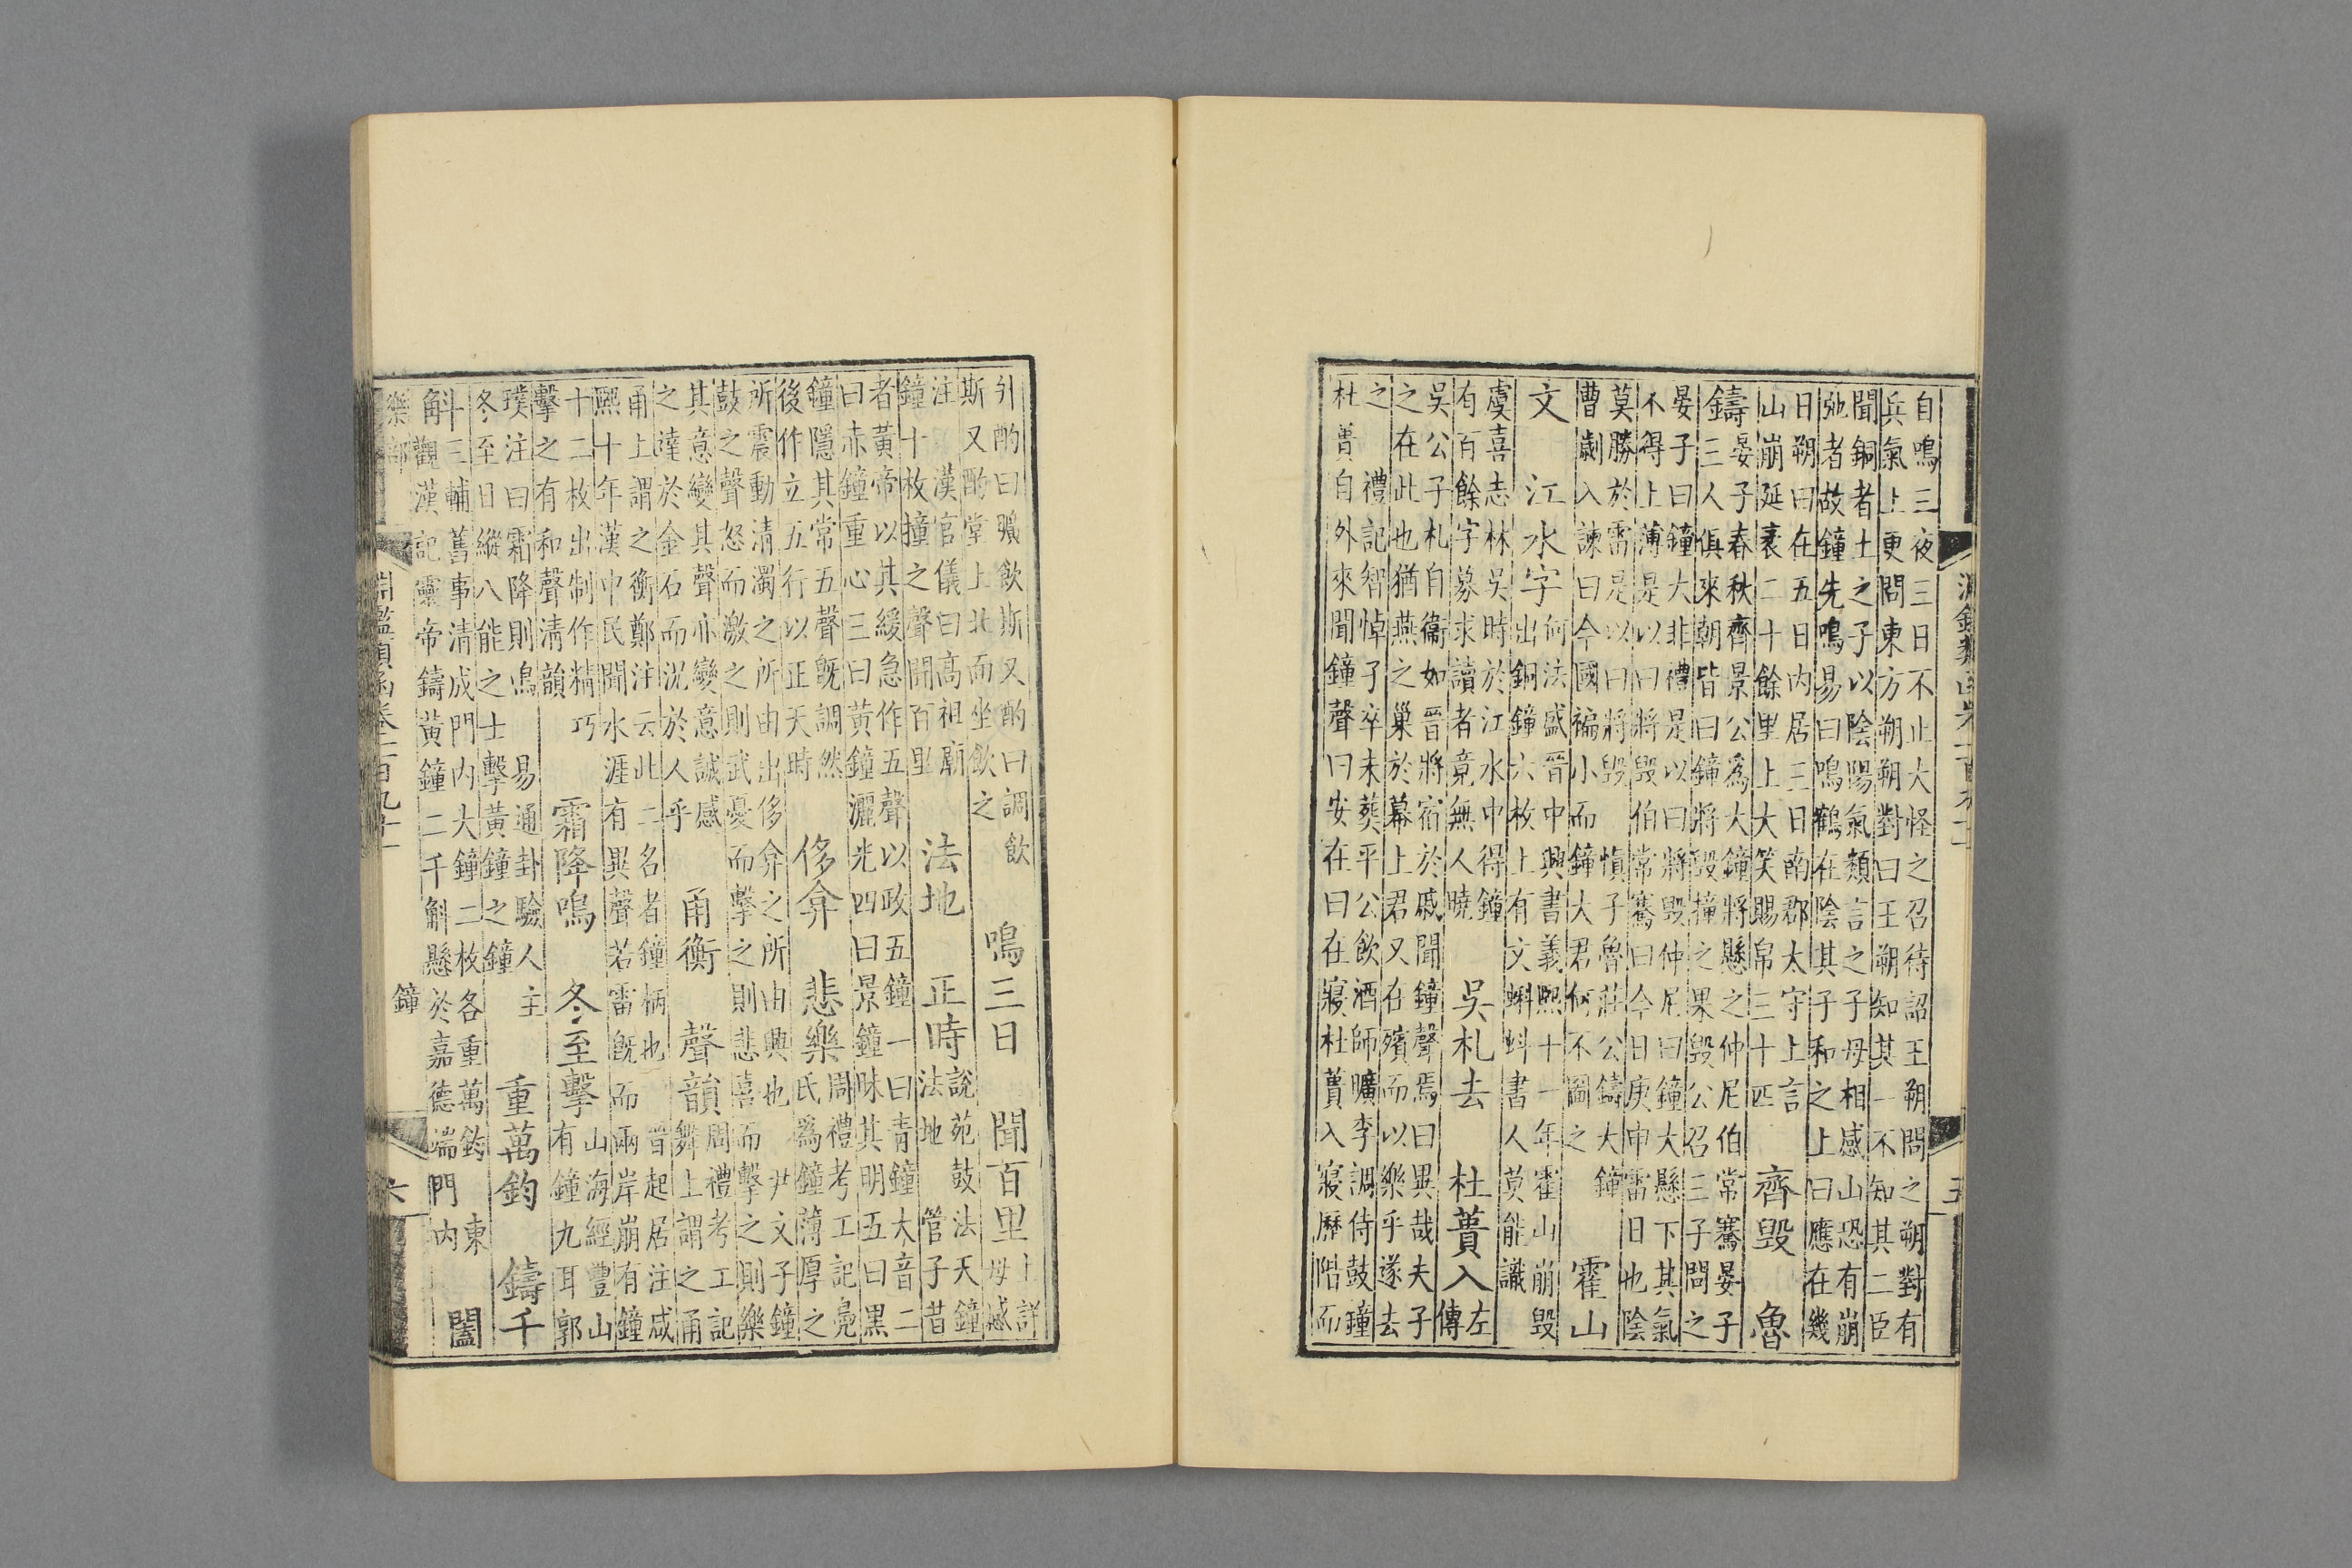 自鳴三夜三日不止大怪之召待詔王朔問之朔對有
兵氣上更問東方朔朔對曰王朔知其一不知其二臣
聞銅者土之子以陰陽氣類言之子母相感山恐有崩
弛者故鐘先鳴易曰鳴鶴在陰其子和之上曰應在幾
日朔曰在五日內居三日南郡太守上言
山崩延袤二十餘里上大笑賜帛三十匹
齊毀　魯
鑄
晏子春秋齊景公爲大鐘將懸之仲尼伯常騫晏子
三人俱來朝皆曰鐘將毀撞之果毀公召三子問之
晏子曰鐘大非禮是以曰將毀仲尼曰鐘大懸下其氣
不得上薄是以曰將毀伯常騫曰今日庚申雷日也陰
莫勝於雷是以曰將毀　愼子魯莊公鑄大鐘
曹劌入諫曰今國褊小而鐘大君何不圖之
霍山
文　江水字
何法盛晉中興書義熙十一年霍山崩毀
出銅鐘六枚上有文蝌蚪書人莫能識
虞喜志林吳時於江水中得鐘
有百餘字募求讀者竟無人曉
吳札去　杜蕢入
左傳
吳公子札自衞如晉將宿於戚聞鐘聲焉曰異哉夫子
之在此也猶燕之巢於幕上君又在殯而以樂乎遂去
之　禮記智悼子卒未葬平公飲酒師曠李調侍鼓鐘
杜蕢自外來聞鐘聲曰安在曰在寢杜蕢入寢歷階而
五
升酌曰曠飲斯又酌曰調飲
斯又酌堂上北面坐飲之
鳴三日　聞百里
上詳
母感
注　漢官儀曰高祖廟
鐘十枚撞之聲聞百里
法地　正時
說苑鼓法天鐘
法地　管子昔
者黃帝以其緩急作五聲以政五鐘一曰青鐘大音二
曰赤鐘重心三曰黃鐘灑光四曰景鐘昧其明五曰黑
鐘隱其常五聲旣調然
後作立五行以正天時
侈弇　悲樂
周禮考工記鳧
氏爲鐘薄厚之
所震動清濁之所由出侈弇之所由興也　尹文子鐘
鼓之聲怒而激之則武憂而擊之則悲喜而擊之則樂
其意變其聲亦變意誠感
之達於金石而況於人乎
甬衡　聲韻
周禮考工記
舞上謂之甬
甬上謂之衡鄭注云此二名者鐘柄也　晉起居注咸
熙十年漢中民聞水涯有異聲若雷旣而兩岸崩有鐘
十二枚出制作精巧
擊之有和聲清韻
霜降鳴　冬至擊
山海經豐山
有鐘九耳郭
璞注曰霜降則鳴　易通卦驗人主
冬至日縱八能之士擊黃鐘之鐘
重萬鈞　鑄千
斛
三輔舊事清成門內大鐘二枚各重萬鈞　東
觀漢記靈帝鑄黃鐘二千斛懸於嘉德端門內
闔
樂部　淵鑑類函卷一百九十一　鐘　六